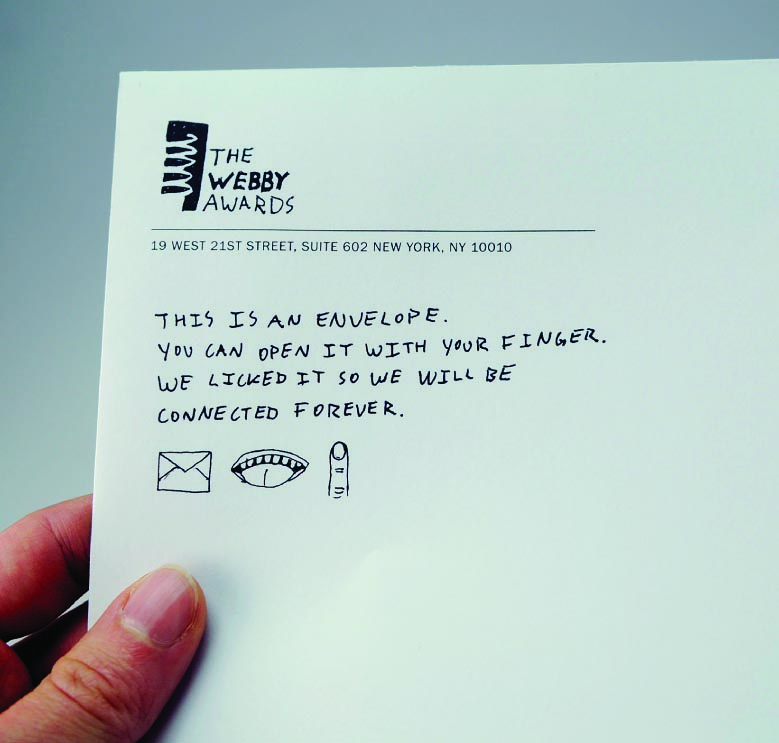 THE
WEBBY
AWARDS
19 WEST 21ST STREET, SUITE 602 NEW YORK, NY 10010
THIS IS AN ENVELOPE.
YOU CAN OPEN IT WITH YOUR FINGER.
WE LICKED IT SO WE WILL BE
CONNECTED FOREVER.